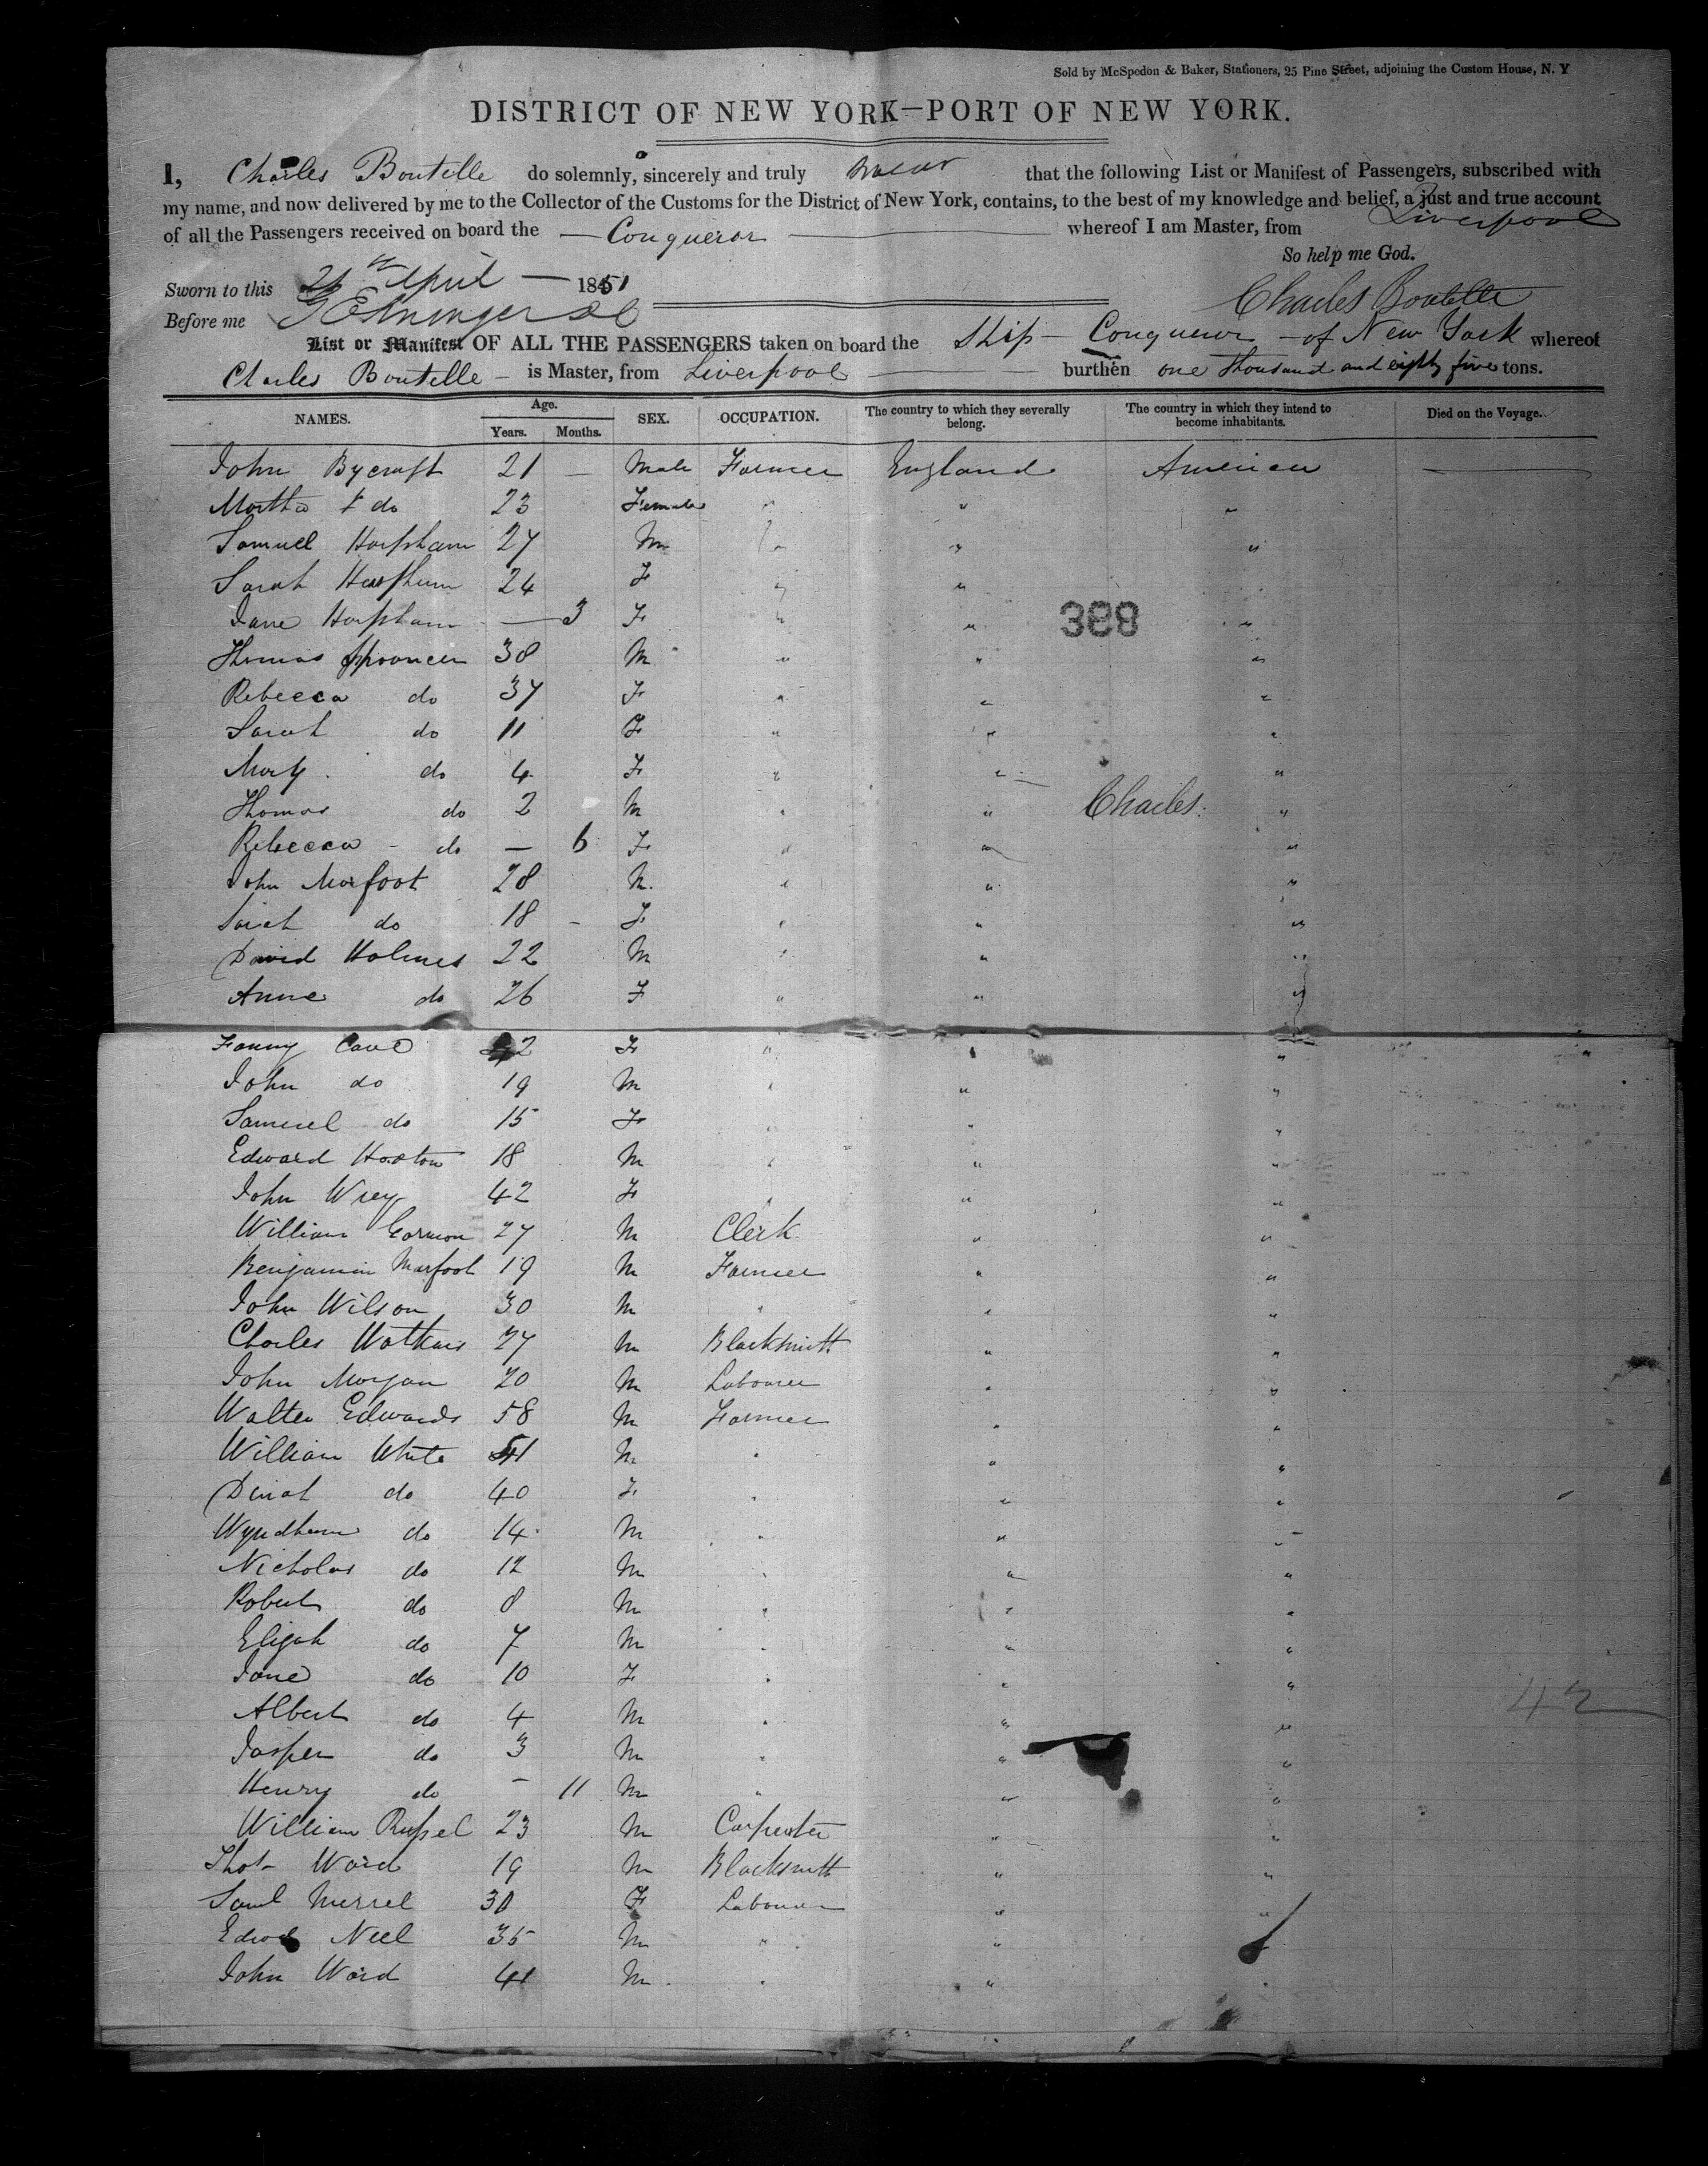 Sold by McSpedon & Baker, Stationers, 25 Pine Street, adjoining the Custom House, N. Y
DISTRICT OF NEW YORK—PORT OF NEW YORK.
I, Charles Boutelle do solemnly, sincerely and truly swear that the following List or Manifest of Passengers, subscribed with
my name, and now delivered by me to the Collector of the Customs for the District of New York, contains, to the best of my knowledge and belief, a just and true account
of all the Passengers received on board the — Conqueror — whereof I am Master, from Liverpool
So help me God.
Sworn to this April — 1851
Charles Boutelle
Before me
List or Manifest OF ALL THE PASSENGERS taken on board the Ship — Conqueror — of New York whereof
Charles Boutelle — is Master, from Liverpool — burthen one thousand and eighty five tons.
NAMES. Age. Years. Months. SEX. OCCUPATION. The country to which they severally belong. The country in which they intend to become inhabitants. Died on the Voyage.
John Bycroft 21 — Male Farmer England America —
Martha do 23 Female " " "
Samuel Harpham 27 M " " "
Sarah Harpham 24 F " " "
Jane Harpham — 3 F " " "
388
Thomas 38 M " " "
Rebecca do 37 F " " "
Sarah do 11 F " " "
Mary do 4 F " " "
Thomas do 2 M " " "
Charles
Rebecca - do — 6 F " " "
John Marfoot 28 M " " "
Sarah do 18 - F " " "
David Holmes 22 M " " "
Anne do 26 F " " "
Fanny Cave 42 F " " "
John do 19 M " " "
Samuel do 15 F " " "
Edward Hoxton 18 M " " "
John Wrey 42 F " " "
William Gorman 27 M Clerk " "
Benjamin Marfoot 19 M Farmer " "
John Wilson 30 M " " "
Charles Watkins 27 M Blacksmith " "
John Morgan 20 M Labourer " "
Walter Edwards 58 M Farmer " "
William White 41 M " " "
Dinah do 40 F " " "
Wyndham do 14 M " " "
Nicholas do 12 M " " "
Robert do 8 M " " "
Elijah do 7 M " " "
Jane do 10 F " " "
42
Albert do 4 M " " "
Jasper do 3 M " " "
Henry do — 11 M " " "
William Russel 23 M Carpenter " "
Thos Ward 19 M Blacksmith " "
Saml Merrel 30 F Labourer " "
Edwd Neel 35 M " " "
John Ward 41 M " "